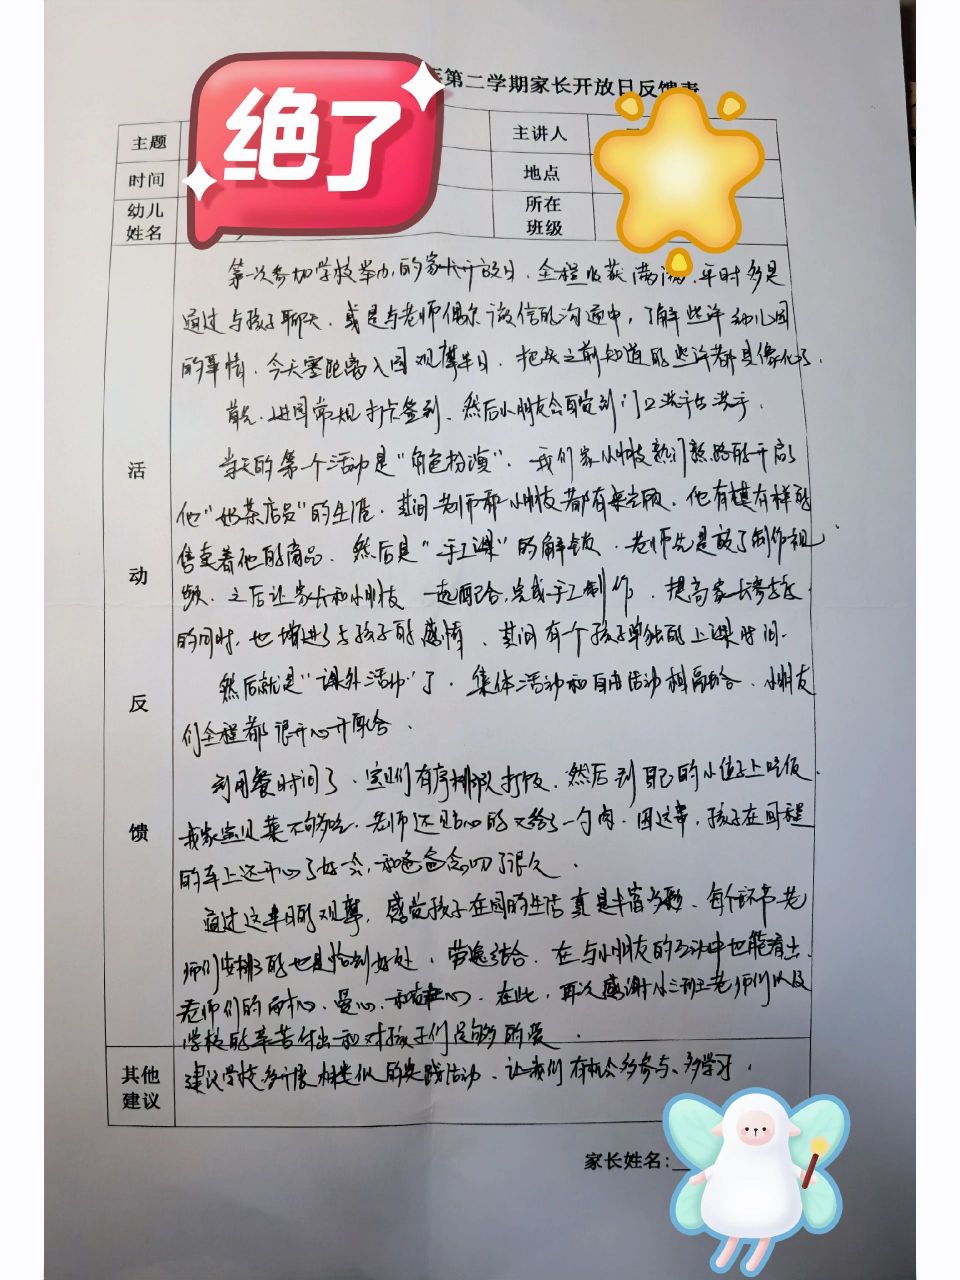 第二学期家长开放日反馈表
绝了
主题
主讲人
时间
地点
幼儿姓名
所在班级
第一次参加学校举办的家长开放日，全程收获满满，平时多是
通过与孩子聊天，或是与老师偶尔微信的沟通中，了解些许幼儿园
的事情，今天零距离入园观摩半日，把从之前知道的些许都具像化了。
首先，进园常规打卡签到，然后小朋友会自觉到门口洗手台洗手。
当天的第一个活动是“角色扮演”，我们家小朋友熟门熟路的开启
他“奶茶店员”的生涯，其间老师和小朋友都有来光顾，他有模有样的
售卖着他的商品，然后是“手工课”的解锁，老师先是放了制作视
频，之后让家长和小朋友一起配合，完成手工制作，提高家长参与度
的同时，也增进了与孩子的感情，其间有个孩子单独的上课时间。
然后就是“课外活动”了，集体活动和自由活动相融合，小朋友
们全程都很开心并配合。
到用餐时间了，宝贝们有序排队打饭，然后到自己的小位子上吃饭，
我家宝贝菜不够吃，老师还贴心的又给了一勺肉，因这事，孩子在回程
的车上还开心了好一会，和爸爸念叨了很久。
通过这半日的观摩，感觉孩子在园的生活真是丰富多彩，每个环节老
师们安排的也是恰到好处，劳逸结合，在与小朋友的互动中也能看出
老师们的耐心、爱心、和责任心，在此，再次感谢小三班老师们以及
学校的辛苦付出和对孩子们足够的爱。
活动反馈
其他建议
建议学校多开展相类似的实践活动，让我们有机会多参与、多学习。
家长姓名：